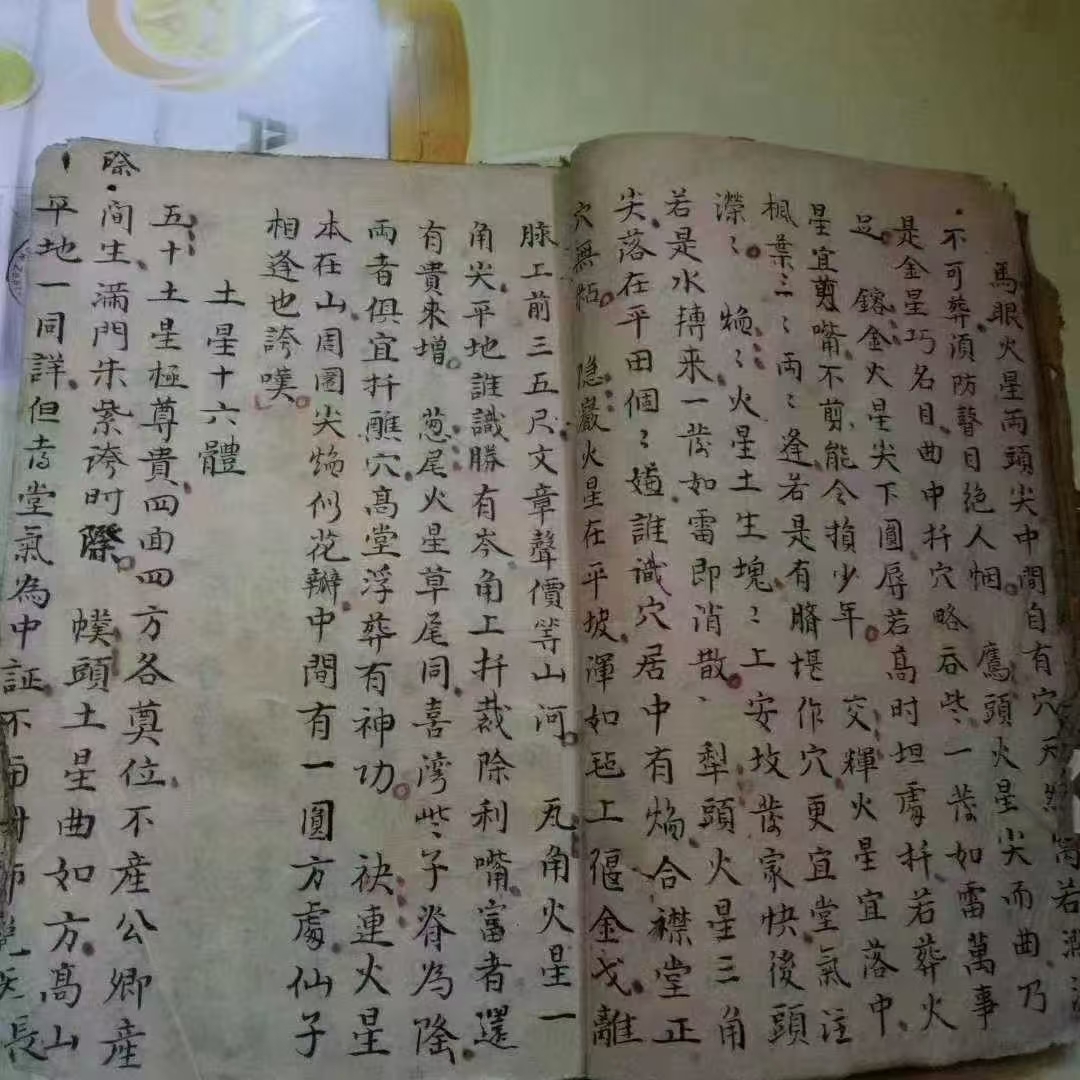 馬眼火星兩頭尖中間自有穴天然高若
不可葬須防瞽目絕人烟 鷹頭火星尖而曲乃
是金星巧名目曲中扦穴略吞些一發如雷萬事
足 鎔金火星尖下圓辱若高时坦處扦若葬火
星宜剪嘴不剪能令損少年 交輝火星宜落中
楓葉三〻兩〻逢若是有臍堪作穴更宜堂氣注
濴〻 燄〻火星土生塊〻上安坟發家快後頭
若是水摶來一發如雷即消散 犁頭火星三角
尖落在平田個〻嫌誰識穴居中有燄合襟堂正
穴無 隐巖火星在平坡渾如毡上偃金戈離
脉上前三五尺文章聲價等山河 瓦角火星一
角尖平地誰識勝有岑角上扦裁除利嘴富者還
有貴來增 葱尾火星草尾同喜湾些子脊為隆
兩者俱宜扦蘸穴高堂浮葬有神功 袂連火星
本在山周圍尖燄似花瓣中間有一圓方處仙子
相逢也誇嘆
土星十六體
五十土星極尊貴四面四方各奠位不産公卿産
間生滿門朱紫誇时際 幞頭土星曲如方高山
際
平地一同詳但
堂氣為中証不
長